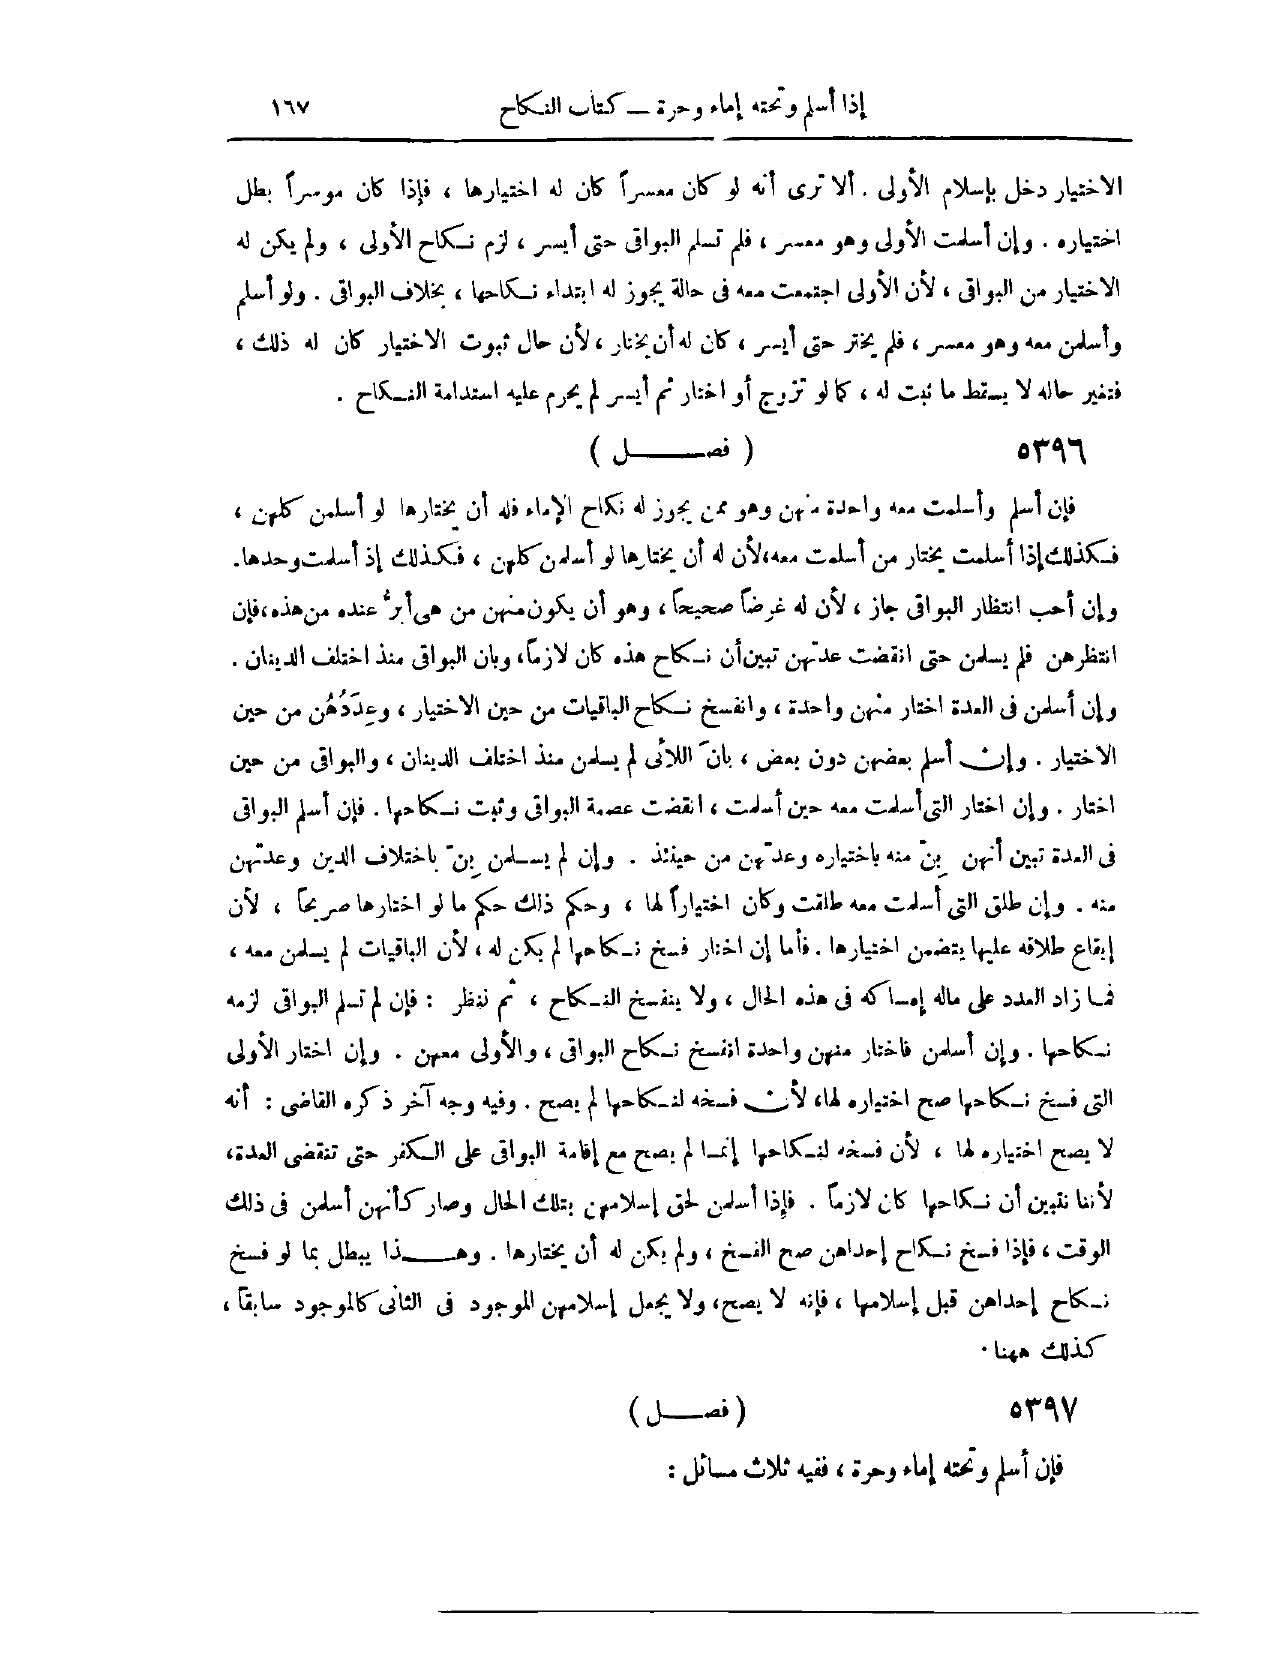 إذا أسلم وتحته إماء وحرة – كتاب النكاح ١٦٧
الاختيار دخل بإسلام الأولى . ألا ترى أنه لو كان معسراً كان له اختيارها ، فإذا كان موسراً بطل
اختياره . وإن أسلمت الأولى وهو معسر ، فلم تسلم البواقى حتى أيسر ، لزم نكاح الأولى ، ولم يكن له
الاختيار من البواقى ، لأن الأولى اجتمعت معه فى حالة يجوز له ابتداء نكاحها ، بخلاف البواقى . ولو أسلم
وأسلمن معه وهو معسر ، فلم يختر حتى أيسر ، كان له أن يختار ، لأن حال ثبوت الاختيار كان له ذلك ،
فتغير حاله لا يسقط ما ثبت له ، كما لو تزوج أو اختار ثم أيسر لم يحرم عليه استدامة النكاح .
٥٣٩٦ ( فصل )
فإن أسلم وأسلمت معه واحدة منهن وهو ممن يجوز له نكاح الإماء فله أن يختارها لو أسلمن كلهن ،
فكذلك إذا أسلمت يختار من أسلمت معه، لأن له أن يختارها لو أسلمن كلهن ، فكذلك إذ أسلمت وحدها.
وإن أحب انتظار البواقى جاز ، لأن له غرضاً صحيحاً ، وهو أن يكون منهن من هى أبرُّ عنده من هذه، فإن
انتظرهن فلم يسلمن حتى انقضت عدتهن تبين أن نكاح هذه كان لازماً، وبان البواقى منذ اختلف الدينان .
وإن أسلمن فى العدة اختار منهن واحدة ، وانفسخ نكاح الباقيات من حين الاختيار ، وعِدَدُهُن من حين
الاختيار . وإن أسلم بعضهن دون بعض ، بانَ اللائى لم يسلمن منذ اختلف الدينان ، والبواقى من حين
اختار . وإن اختار التى أسلمت معه حين أسلمت ، انقضت عصمة البواقى وثبت نكاحها . فإن أسلم البواقى
فى العدة تبين أنهن بِنّ منه باختياره وعدتهن من حينئذ . وإن لم يسلمن بِنّ باختلاف الدين وعدتهن
منه . وإن طلق التى أسلمت معه طلقت وكان اختياراً لها ، وحكم ذلك حكم ما لو اختارها صريحاً ، لأن
إيقاع طلاقه عليها يتضمن اختيارها . فأما إن اختار فسخ نكاحها لم يكن له ، لأن الباقيات لم يسلمن معه ،
فما زاد العدد على ماله إمساكه فى هذه الحال ، ولا ينفسخ النكاح ، ثم ننظر : فإن لم تسلم البواقى لزمه
نكاحها . وإن أسلمن فاختار منهن واحدة انفسخ نكاح البواقى ، والأولى معهن . وإن اختار الأولى
التى فسخ نكاحها صح اختياره لها، لأن فسخه لنكاحها لم يصح . وفيه وجه آخر ذكره القاضى : أنه
لا يصح اختياره لها ، لأن فسخه لنكاحها إنما لم يصح مع إقامة البواقى على الكفر حتى تنقضى العدة،
لأننا نتبين أن نكاحها كان لازماً . فإذا أسلمن لحق إسلامهن بتلك الحال وصار كأنهن أسلمن فى ذلك
الوقت ، فإذا فسخ نكاح إحداهن صح الفسخ ، ولم يكن له أن يختارها . وهذا يبطل بما لو فسخ
نكاح إحداهن قبل إسلامها ، فإنه لا يصح، ولا يجعل إسلامهن الموجود فى الثانى كالموجود سابقاً ،
كذلك ههنا .
٥٣٩٧ ( فصل )
فإن أسلم وتحته إماء وحرة ، ففيه ثلاث مسائل :